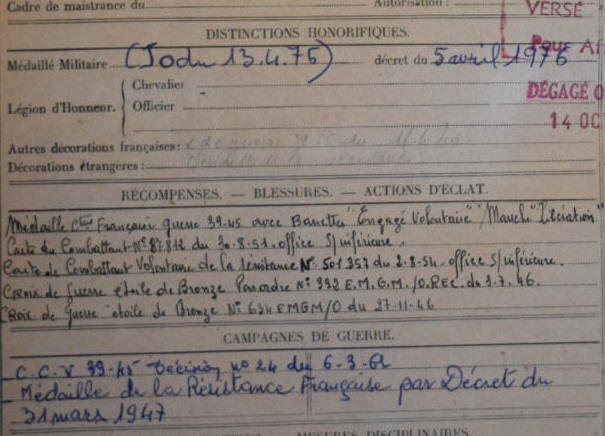 Cadre de maistrance du
Autorisation :
VERSÉ
DISTINCTIONS HONORIFIQUES.
Pour Af
Médaillé Militaire (Jodu 13.4.75) décret du 5 avril 1976
Chevalier
DÉGAGÉ O
Légion d'Honneur. Officier
14 OC
Autres décorations françaises : guerre 39
Décorations étrangères : Médaille de la
RÉCOMPENSES. — BLESSURES. — ACTIONS D'ÉCLAT.
Médaille Française guerre 39.45 avec Barrettes "Engagé Volontaire" "Manche" "Libération"
Carte du Combattant N° 87812 du 30-8-51. office S/ inférieure.
Carte de Combattant Volontaire de la Résistance N° 501357 du 2-8-54. office S/ inférieure.
Croix de Guerre étoile de Bronze Par ordre N° 392 E.M.G.M./O.REC. du 3-7.46.
Croix de Guerre étoile de Bronze N° 634 EMGM/O du 27-11-46
CAMPAGNES DE GUERRE.
C.C.V 39-45 Décision n° 24 du 6-3-62
Médaille de la Résistance Française par Décret du
31 mars 1947
MESURES DISCIPLINAIRES.